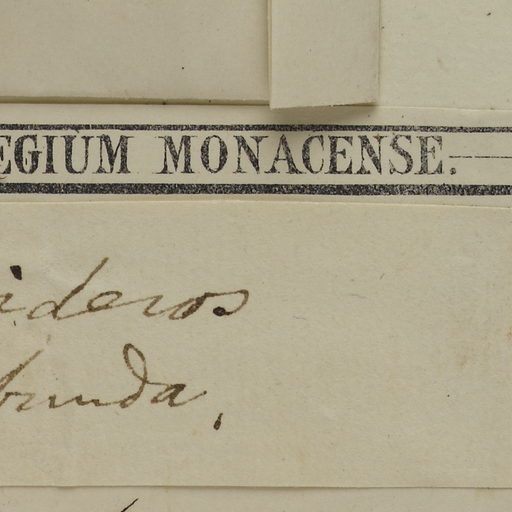 EGIUM MONACENSE.
ideros
bunda,